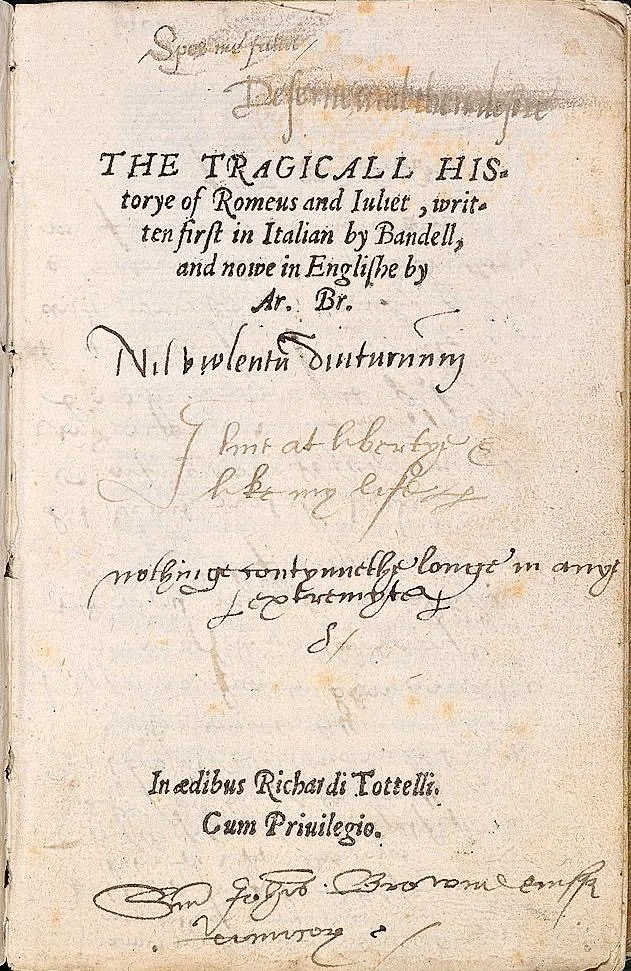 Spes me
THE TRAGICALL HIS-
torye of Romeus and Iuliet, writ-
ten first in Italian by Bandell,
and nowe in Englishe by
Ar. Br.
Nil violentū diuturnum
I liue at libertye &
like my life
nothinge contynnethe longe in anye
extremytea
In ædibus Richardi Tottelli.
Cum Priuilegio.